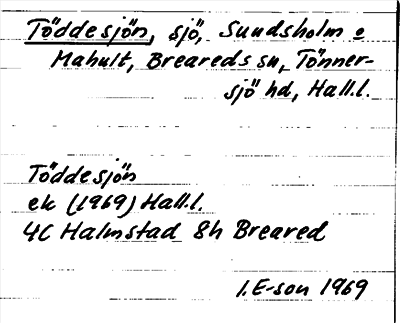 Töddesjön, sjö, Sundsholm o
Mahult, Breareds sn, Tönner-
sjö hd, Hall.l.
Töddesjön
ek (1969) Hall.l.
4C Halmstad 8h Breared
I.E-son 1969